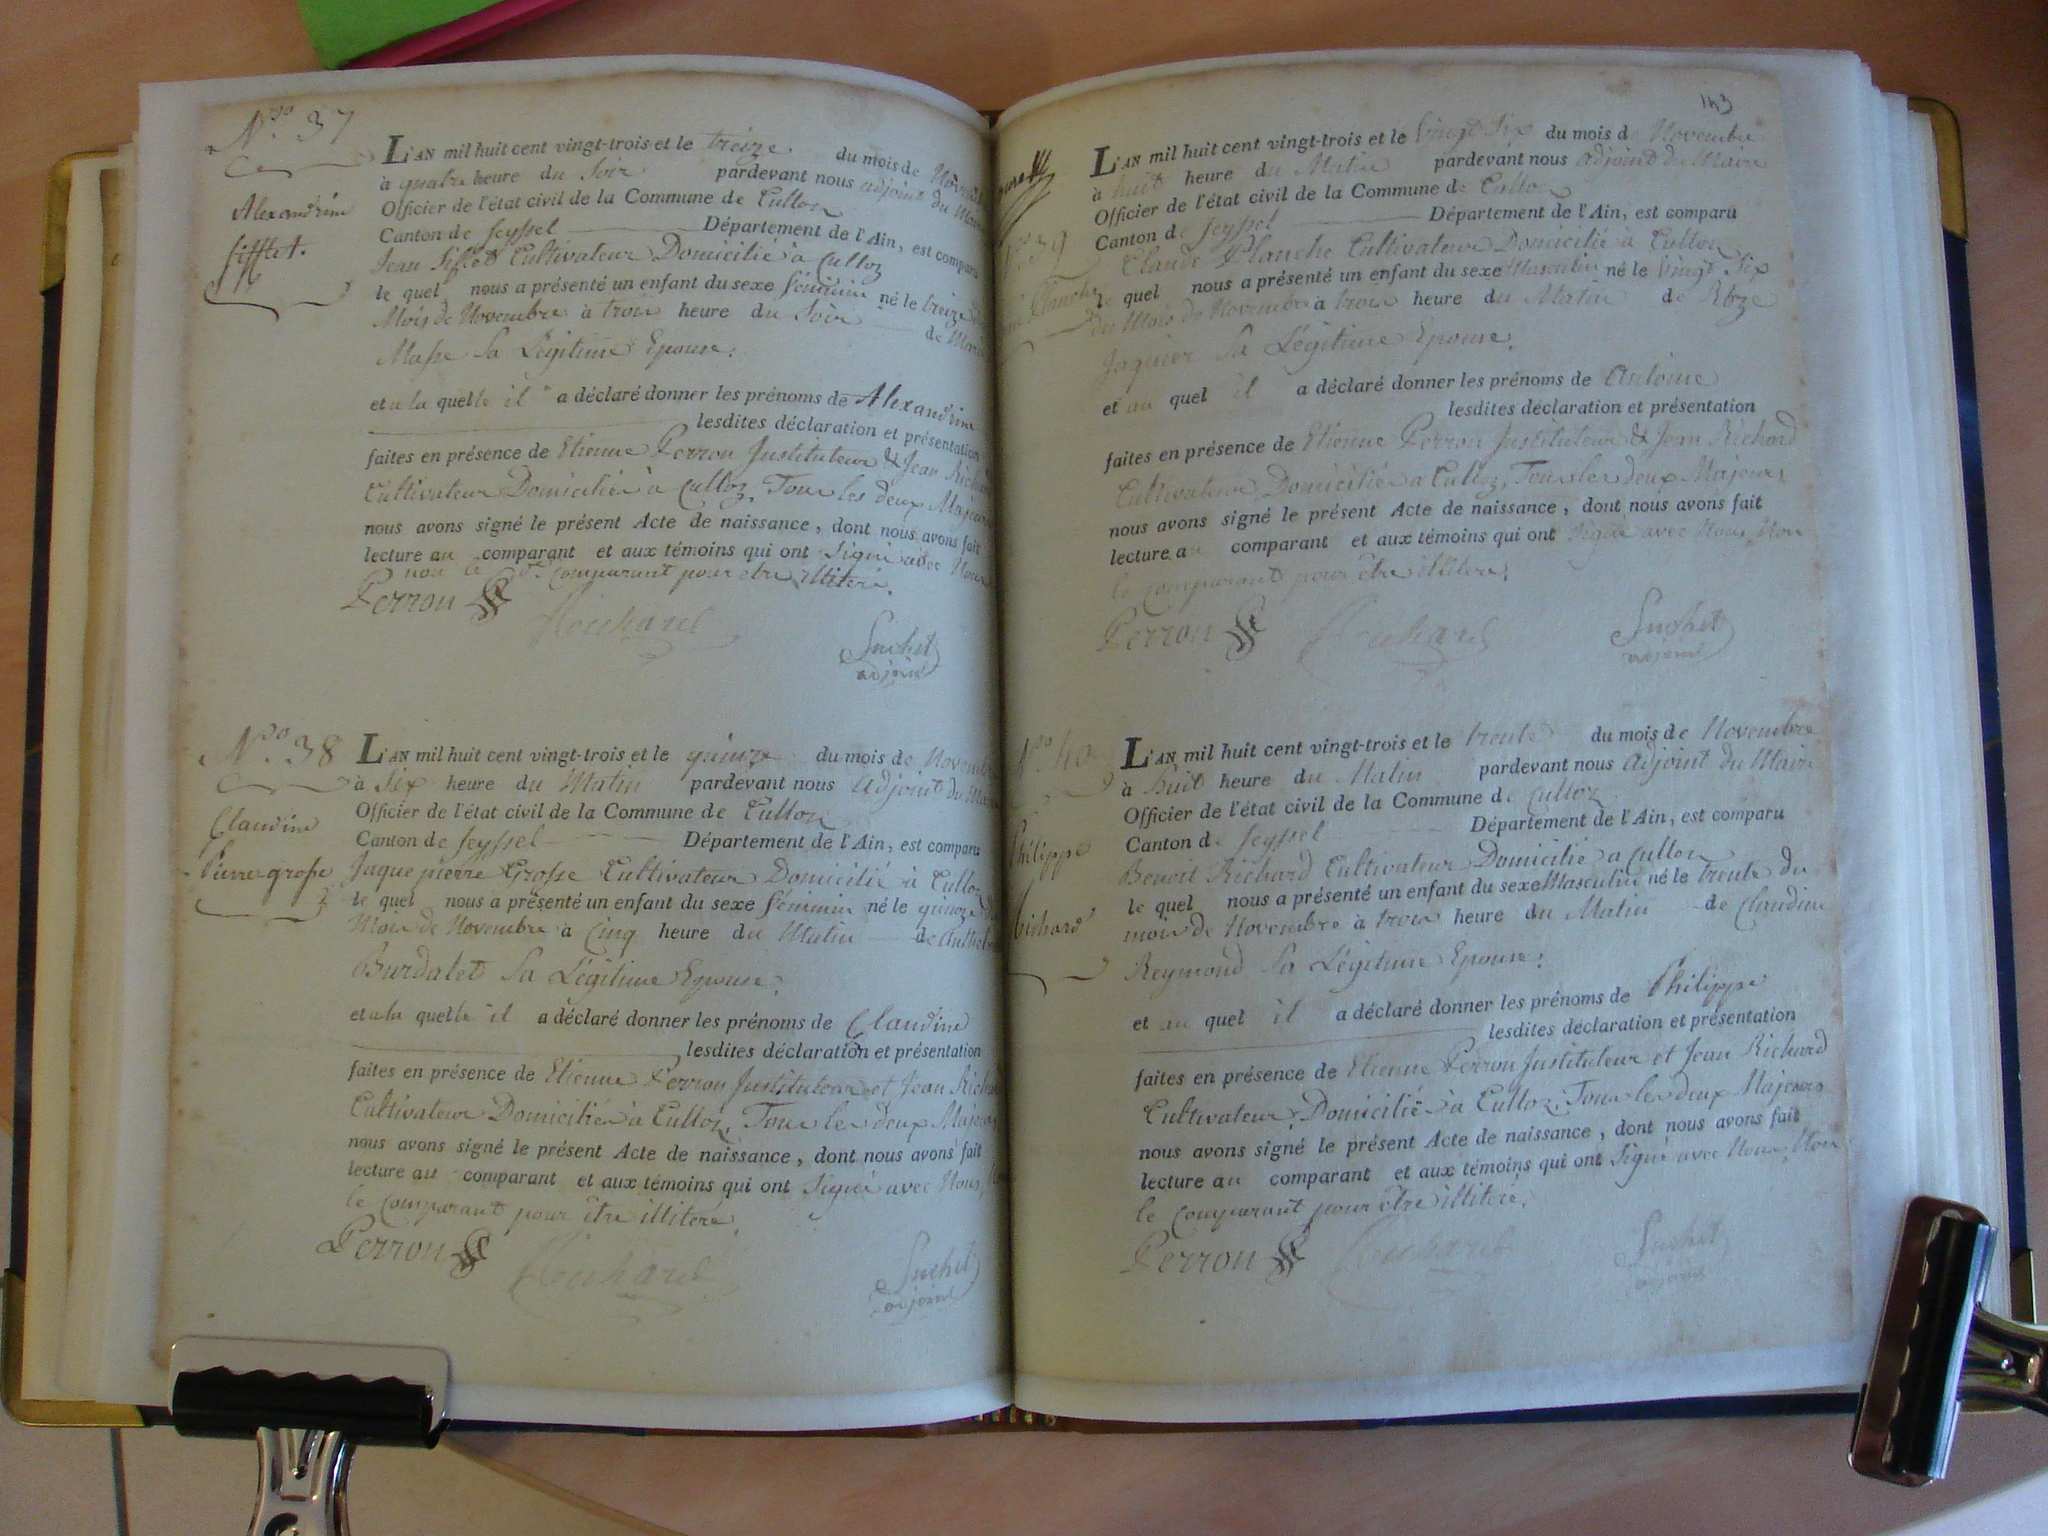 N.º 37
Alexandrine
Sifflet.
L'AN mil huit cent vingt-trois et le treize du mois de Novembre
à quatre heure du Soir pardevant nous adjoint du Maire
Officier de l'état civil de la Commune de Culloz
Canton de Seyssel Département de l'Ain, est comparu
Jean Sifflet Cultivateur Domicilié à Culloz
le quel nous a présenté un enfant du sexe féminin né le treize du
Mois de Novembre à trois heure du Soir de Marie
Masse Sa Légitime Epouse.
et a la quelle il a déclaré donner les prénoms de Alexandrine
lesdites déclaration et présentation
faites en présence de Etienne Perron Instituteur & Jean Richard
Cultivateur Domiciliés à Culloz, Tous les deux Majeurs
nous avons signé le présent Acte de naissance, dont nous avons fait
lecture au comparant et aux témoins qui ont Signé avec Nous
non le dt. comparant pour etre illiteré.
Perron Richard
Suchet
adjoint
N.º 38
Claudine
Pierregrosse
L'AN mil huit cent vingt-trois et le quinze du mois de Novembre
à Six heure du Matin pardevant nous adjoint du Maire
Officier de l'état civil de la Commune de Culloz
Canton de Seyssel Département de l'Ain, est comparu
Jaque pierre Grosse Cultivateur Domicilié à Culloz
le quel nous a présenté un enfant du sexe féminin né le quinze du
Mois de Novembre à Cinq heure du Matin de
Burdalet Sa Légitime Epouse.
et a la quelle il a déclaré donner les prénoms de Claudine
lesdites déclaration et présentation
faites en présence de Etienne Perron Instituteur et Jean Richard
Cultivateur Domiciliés à Culloz, Tous les deux Majeurs
nous avons signé le présent Acte de naissance, dont nous avons fait
lecture au comparant et aux témoins qui ont Signé avec Nous, Non
le Comparant pour être illiteré.
Perron Richard
Suchet
adjoint
143
N.º 39
Planche
L'AN mil huit cent vingt-trois et le Vingt Six du mois de Novembre
à huit heure du Matin pardevant nous adjoint du Maire
Officier de l'état civil de la Commune de Culloz
Canton de Seyssel Département de l'Ain, est comparu
Claude Planche Cultivateur Domicilié à Culloz
le quel nous a présenté un enfant du sexe Masculin né le Vingt Six
du Mois de Novembre à trois heure du Matin de
Jaquier Sa Légitime Epouse.
et au quel il a déclaré donner les prénoms de Antoine
lesdites déclaration et présentation
faites en présence de Etienne Perron Instituteur & Jean Richard
Cultivateur, Domiciliés à Culloz, Tous les deux Majeurs,
nous avons signé le présent Acte de naissance, dont nous avons fait
lecture au comparant et aux témoins qui ont Signé avec Nous, Non
le comparant pour être illiteré.
Perron Richard Suchet
adjoint
N.º 40
Philippe
Richard
L'AN mil huit cent vingt-trois et le trente du mois de Novembre
à huit heure du Matin pardevant nous adjoint du Maire
Officier de l'état civil de la Commune de Culloz
Canton de Seyssel Département de l'Ain, est comparu
Benoit Richard Cultivateur Domicilié à Culloz
le quel nous a présenté un enfant du sexe Masculin né le trente du
mois de Novembre à trois heure du Matin de Claudine
Reymond Sa Légitime Epouse.
et au quel il a déclaré donner les prénoms de Philippe
lesdites déclaration et présentation
faites en présence de Etienne Perron Instituteur et Jean Richard
Cultivateur, Domiciliés à Culloz, Tous les deux Majeurs
nous avons signé le présent Acte de naissance, dont nous avons fait
lecture au comparant et aux témoins qui ont Signé avec Nous, Non
le comparant pour être illiteré.
Perron Richard Suchet
adjoint